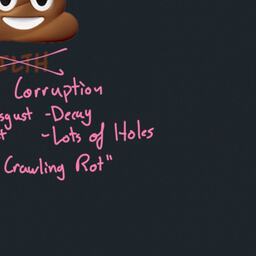 Corruption
sgust -Decay
-Lots of Holes
Crawling Rot"